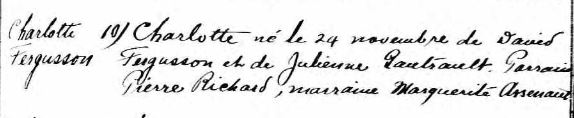 Charlotte 19) Charlotte né le 24 novembre de David
Fergusson Fergusson et de Julienne Gautrault. Parrain
Pierre Richard, marraine Marguerite Arsenault